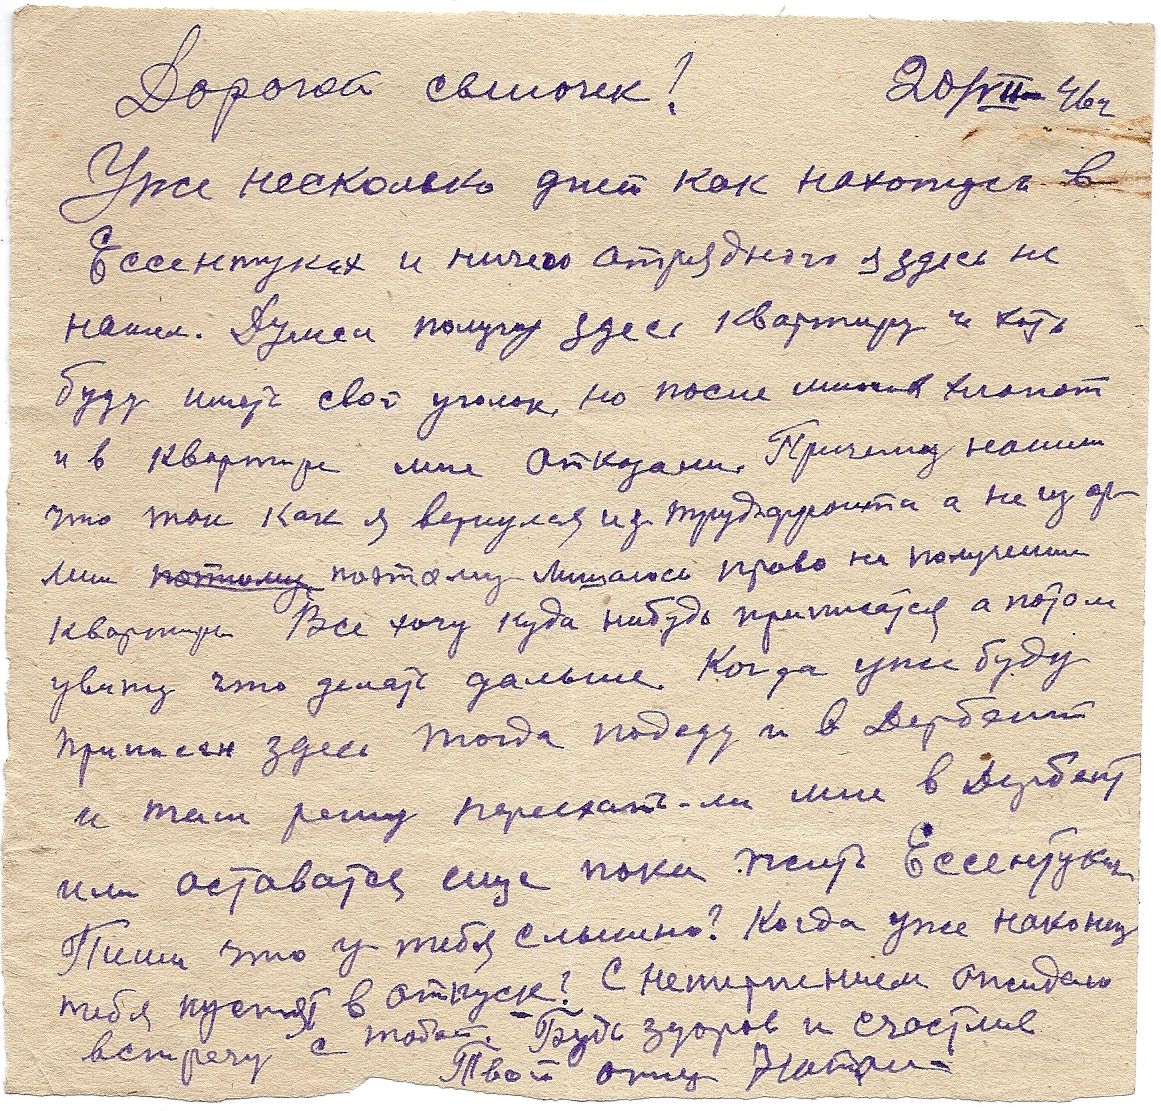 Дорогой сыночек! 20/VII-46г
Уже несколько дней как нахожусь в
Ессентуках и ничего отрядного я здесь не
нашел. Думал получу здесь квартиру и хоть
буду иметь свой уголок, но после многих хлопот
и в квартире мне отказали. Причину нашли
что так как я вернулся из трудфронта а не из ар-
мии поэтому поэтому лишаюсь право на получение
квартиры Все хочу куда нибудь приписатся а потом
увижу что делать дальше. Когда уже буду
приписан здесь тогда подеду и в Дербент
и там решу переехать-ли мне в Дербент
или оставатся еще пока жить Ессентуках
Пиши что у тебя слышно? Когда уже наконец
тебя пустят в отпуск? С нетерпением ожидаю
встречу с тобой. Будь здоров и счастлив
Твой отец